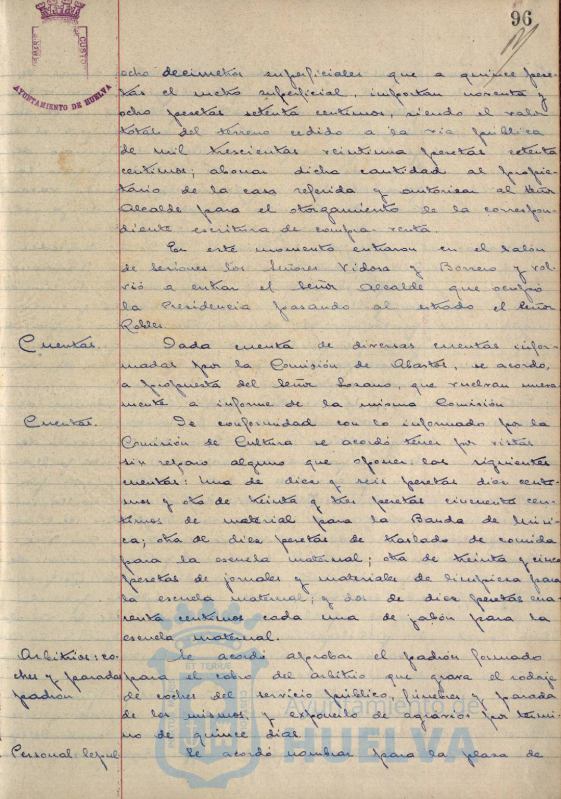 96
AYUNTAMIENTO DE HUELVA
ocho decimetros superficiales que a quince pese-
tas el metro superficial, importan noventa y
ocho pesetas setenta centimos, siendo el valor
total del terreno cedido a la via publica
de mil trescientas veintiuna pesetas setenta
centimos; abonar dicha cantidad al propie-
tario de la casa referida y autorizar al Señor
Alcalde para el otorgamiento de la correspon-
diente escritura de compra-venta.
En este momento entraron en el Salón
de Sesiones los Señores Vidosa y Borrero y vol-
vió a entrar el Señor Alcalde que ocupó
la Presidencia pasando al estrado el Señor
Robles.
Cuentas. Dada cuenta de diversas cuentas infor-
madas por la Comisión de Abastos, se acordó,
a propuesta del Señor Lozano, que vuelvan nueva-
mente a informe de la misma Comisión
Cuentas. De conformidad con lo informado por la
Comisión de Cultura se acordó tener por vistas
sin reparo alguno que oponer, las siguientes
cuentas: Una de diez y seis pesetas diez centi-
mos y otra de treinta y tres pesetas cincuenta cen-
timos de material para la Banda de Músi-
ca; otra de diez pesetas de traslado de comida
para la escuela maternal; otra de treinta y cinco
pesetas de jornales y materiales de limpieza para
la escuela maternal; y dos de diez pesetas cua-
renta centimos cada una de jabón para la
escuela maternal.
Arbitrios: co-
ches y paradas
padrón
Se acordó aprobar el padrón formado
para el cobro del arbitrio que grava el rodaje
de coches del servicio público, fúnebres y parada
de los mismos, y exponerlo de agravios por termi-
no de quince dias.
Personal: Se acordó nombrar para la plaza de
Ayuntamiento de
HUELVA